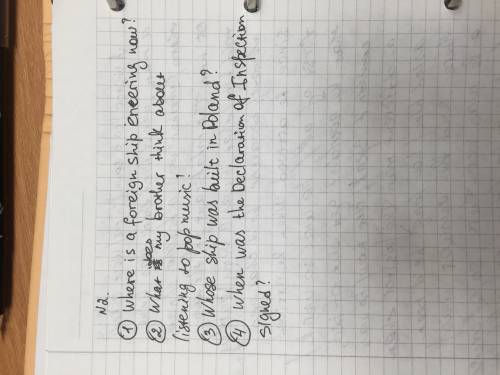 N2.
① Where is a foreign ship entering now?
② What does my brother think about
listening to pop music?
③ Whose ship was built in Poland?
④ When was the Declaration of Inspection
signed?